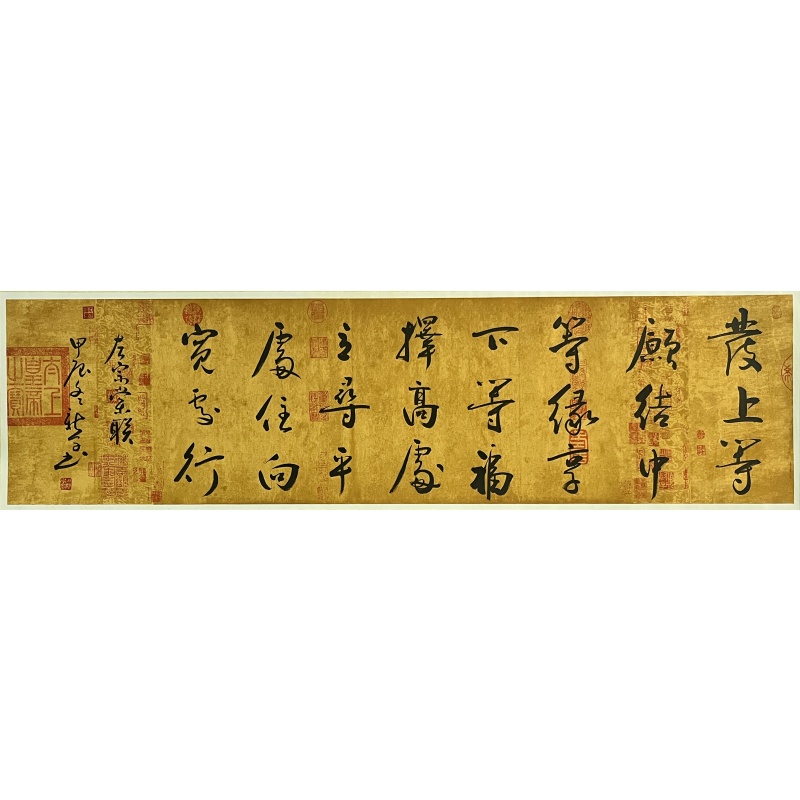 發上等
願結中
等緣享
下等福
擇高處
立尋平
處住向
寬處行
左宗棠聯
甲辰冬
太上皇帝之寶